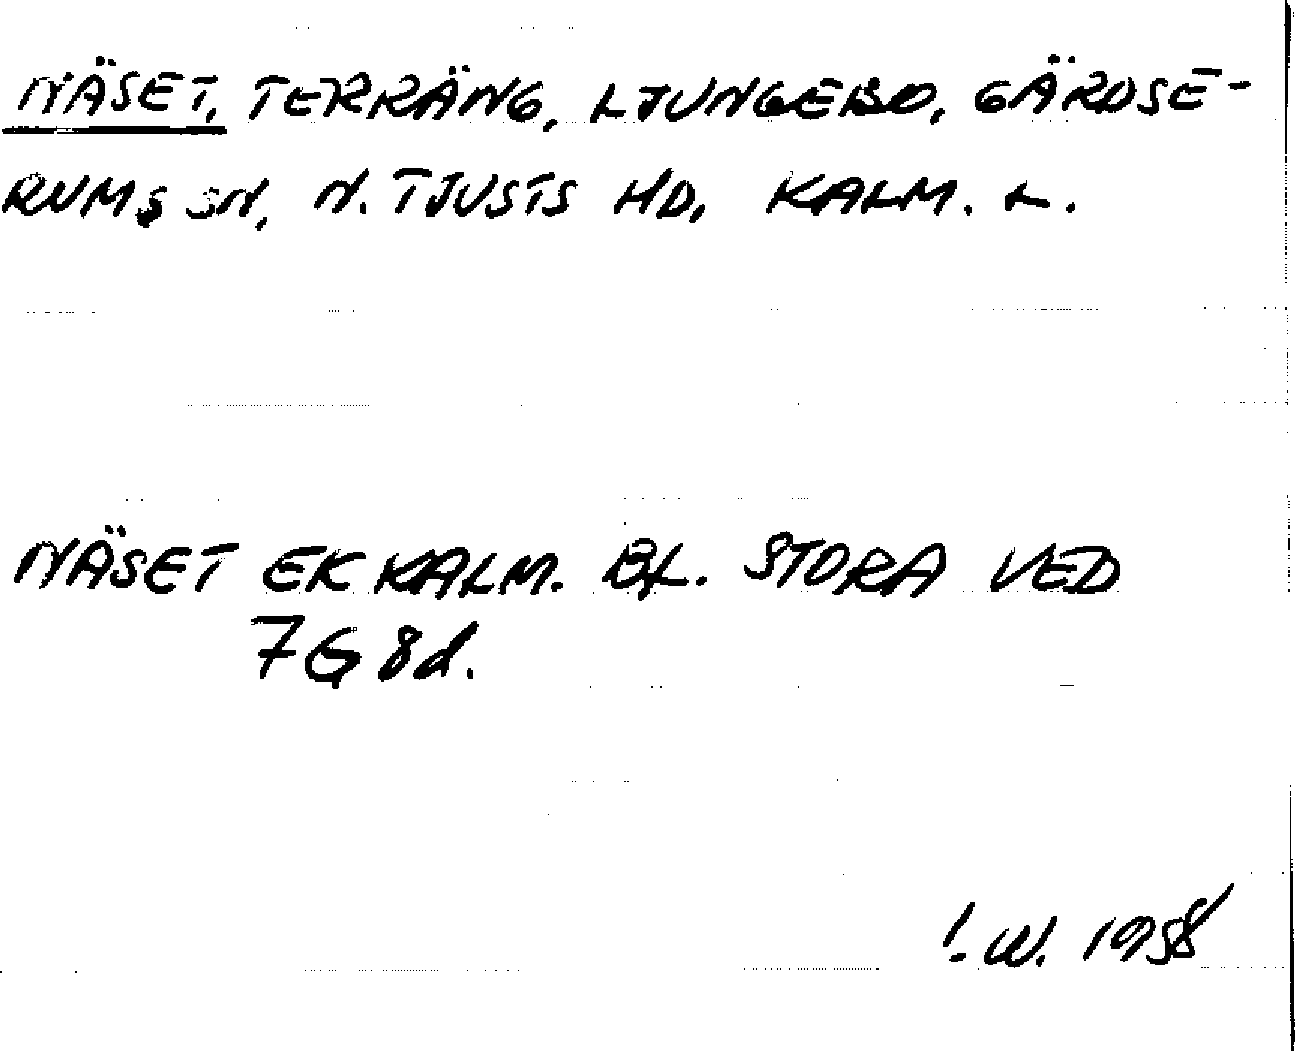 NÄSET, TERRÄNG, LJUNGEBO, GÄRDSE-
RUMS SN, N. TJUSTS HD, KALM. L.
NÄSET EK KALM. BL. STORA VED
7G 8d.
!. W. 1958